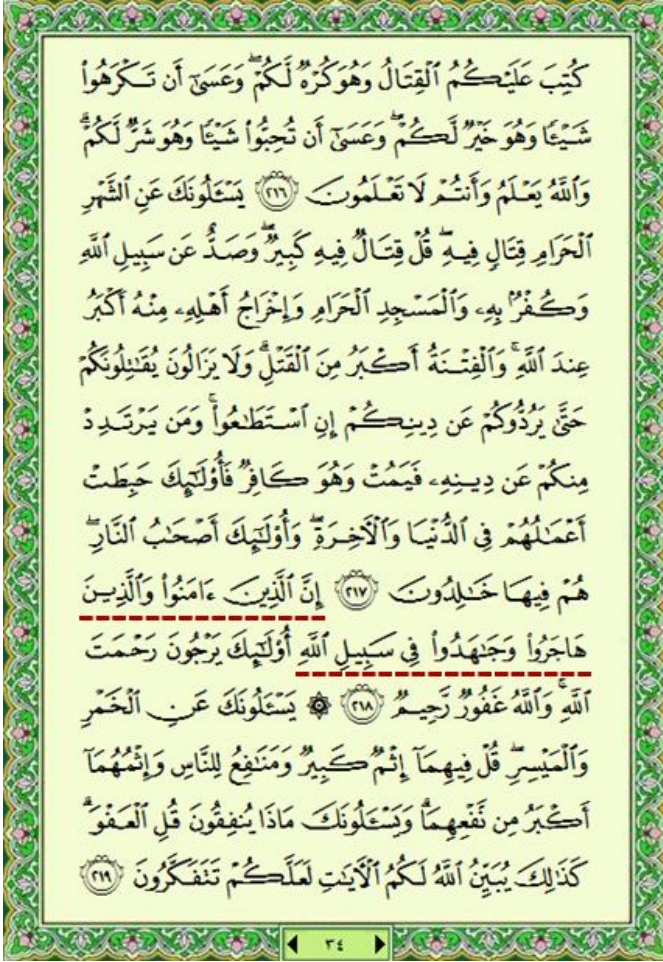 كُتِبَ عَلَيْكُمُ ٱلْقِتَالُ وَهُوَ كُرْهٌ لَّكُمْ ۖ وَعَسَىٰٓ أَن تَكْرَهُوا۟
شَيْـًٔا وَهُوَ خَيْرٌ لَّكُمْ ۖ وَعَسَىٰٓ أَن تُحِبُّوا۟ شَيْـًٔا وَهُوَ شَرٌّ لَّكُمْ ۗ
وَٱللَّهُ يَعْلَمُ وَأَنتُمْ لَا تَعْلَمُونَ ﴿٢١٦﴾ يَسْـَٔلُونَكَ عَنِ ٱلشَّهْرِ
ٱلْحَرَامِ قِتَالٍ فِيهِ ۖ قُلْ قِتَالٌ فِيهِ كَبِيرٌ ۖ وَصَدٌّ عَن سَبِيلِ ٱللَّهِ
وَكُفْرٌۢ بِهِۦ وَٱلْمَسْجِدِ ٱلْحَرَامِ وَإِخْرَاجُ أَهْلِهِۦ مِنْهُ أَكْبَرُ
عِندَ ٱللَّهِ ۚ وَٱلْفِتْنَةُ أَكْبَرُ مِنَ ٱلْقَتْلِ ۗ وَلَا يَزَالُونَ يُقَـٰتِلُونَكُمْ
حَتَّىٰ يَرُدُّوكُمْ عَن دِينِكُمْ إِنِ ٱسْتَطَـٰعُوا۟ ۚ وَمَن يَرْتَدِدْ
مِنكُمْ عَن دِينِهِۦ فَيَمُتْ وَهُوَ كَافِرٌ فَأُو۟لَـٰٓئِكَ حَبِطَتْ
أَعْمَـٰلُهُمْ فِى ٱلدُّنْيَا وَٱلْـَٔاخِرَةِ ۖ وَأُو۟لَـٰٓئِكَ أَصْحَـٰبُ ٱلنَّارِ ۖ
هُمْ فِيهَا خَـٰلِدُونَ ﴿٢١٧﴾ إِنَّ ٱلَّذِينَ ءَامَنُوا۟ وَٱلَّذِينَ
هَاجَرُوا۟ وَجَـٰهَدُوا۟ فِى سَبِيلِ ٱللَّهِ أُو۟لَـٰٓئِكَ يَرْجُونَ رَحْمَتَ
ٱللَّهِ ۚ وَٱللَّهُ غَفُورٌ رَّحِيمٌ ﴿٢١٨﴾ ۞ يَسْـَٔلُونَكَ عَنِ ٱلْخَمْرِ
وَٱلْمَيْسِرِ ۖ قُلْ فِيهِمَآ إِثْمٌ كَبِيرٌ وَمَنَـٰفِعُ لِلنَّاسِ وَإِثْمُهُمَآ
أَكْبَرُ مِن نَّفْعِهِمَا ۗ وَيَسْـَٔلُونَكَ مَاذَا يُنفِقُونَ قُلِ ٱلْعَفْوَ ۗ
كَذَٰلِكَ يُبَيِّنُ ٱللَّهُ لَكُمُ ٱلْـَٔايَـٰتِ لَعَلَّكُمْ تَتَفَكَّرُونَ ﴿٢١٩﴾
٣٤